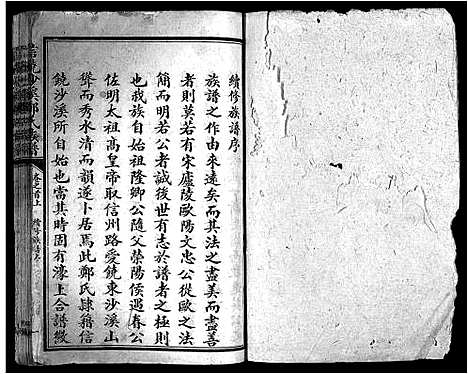 續修族譜序
族譜之作由來遠矣而其法之盡美而盡善
者則莫若有宋廬陵歐陽文忠公從歐之法
簡而明若公者誠後世有志於譜者之極則
也我族自始祖隆卿公隨父榮陽侯遇春公
佐明太祖高皇帝取信州路愛饒東沙溪山
聳而秀水清而韻遂卜居焉此鄭氏隸籍信
饒沙溪所自始也當其時固有濠上合譜緻
饒沙溪鄭氏族譜
卷之首上
續修族譜序